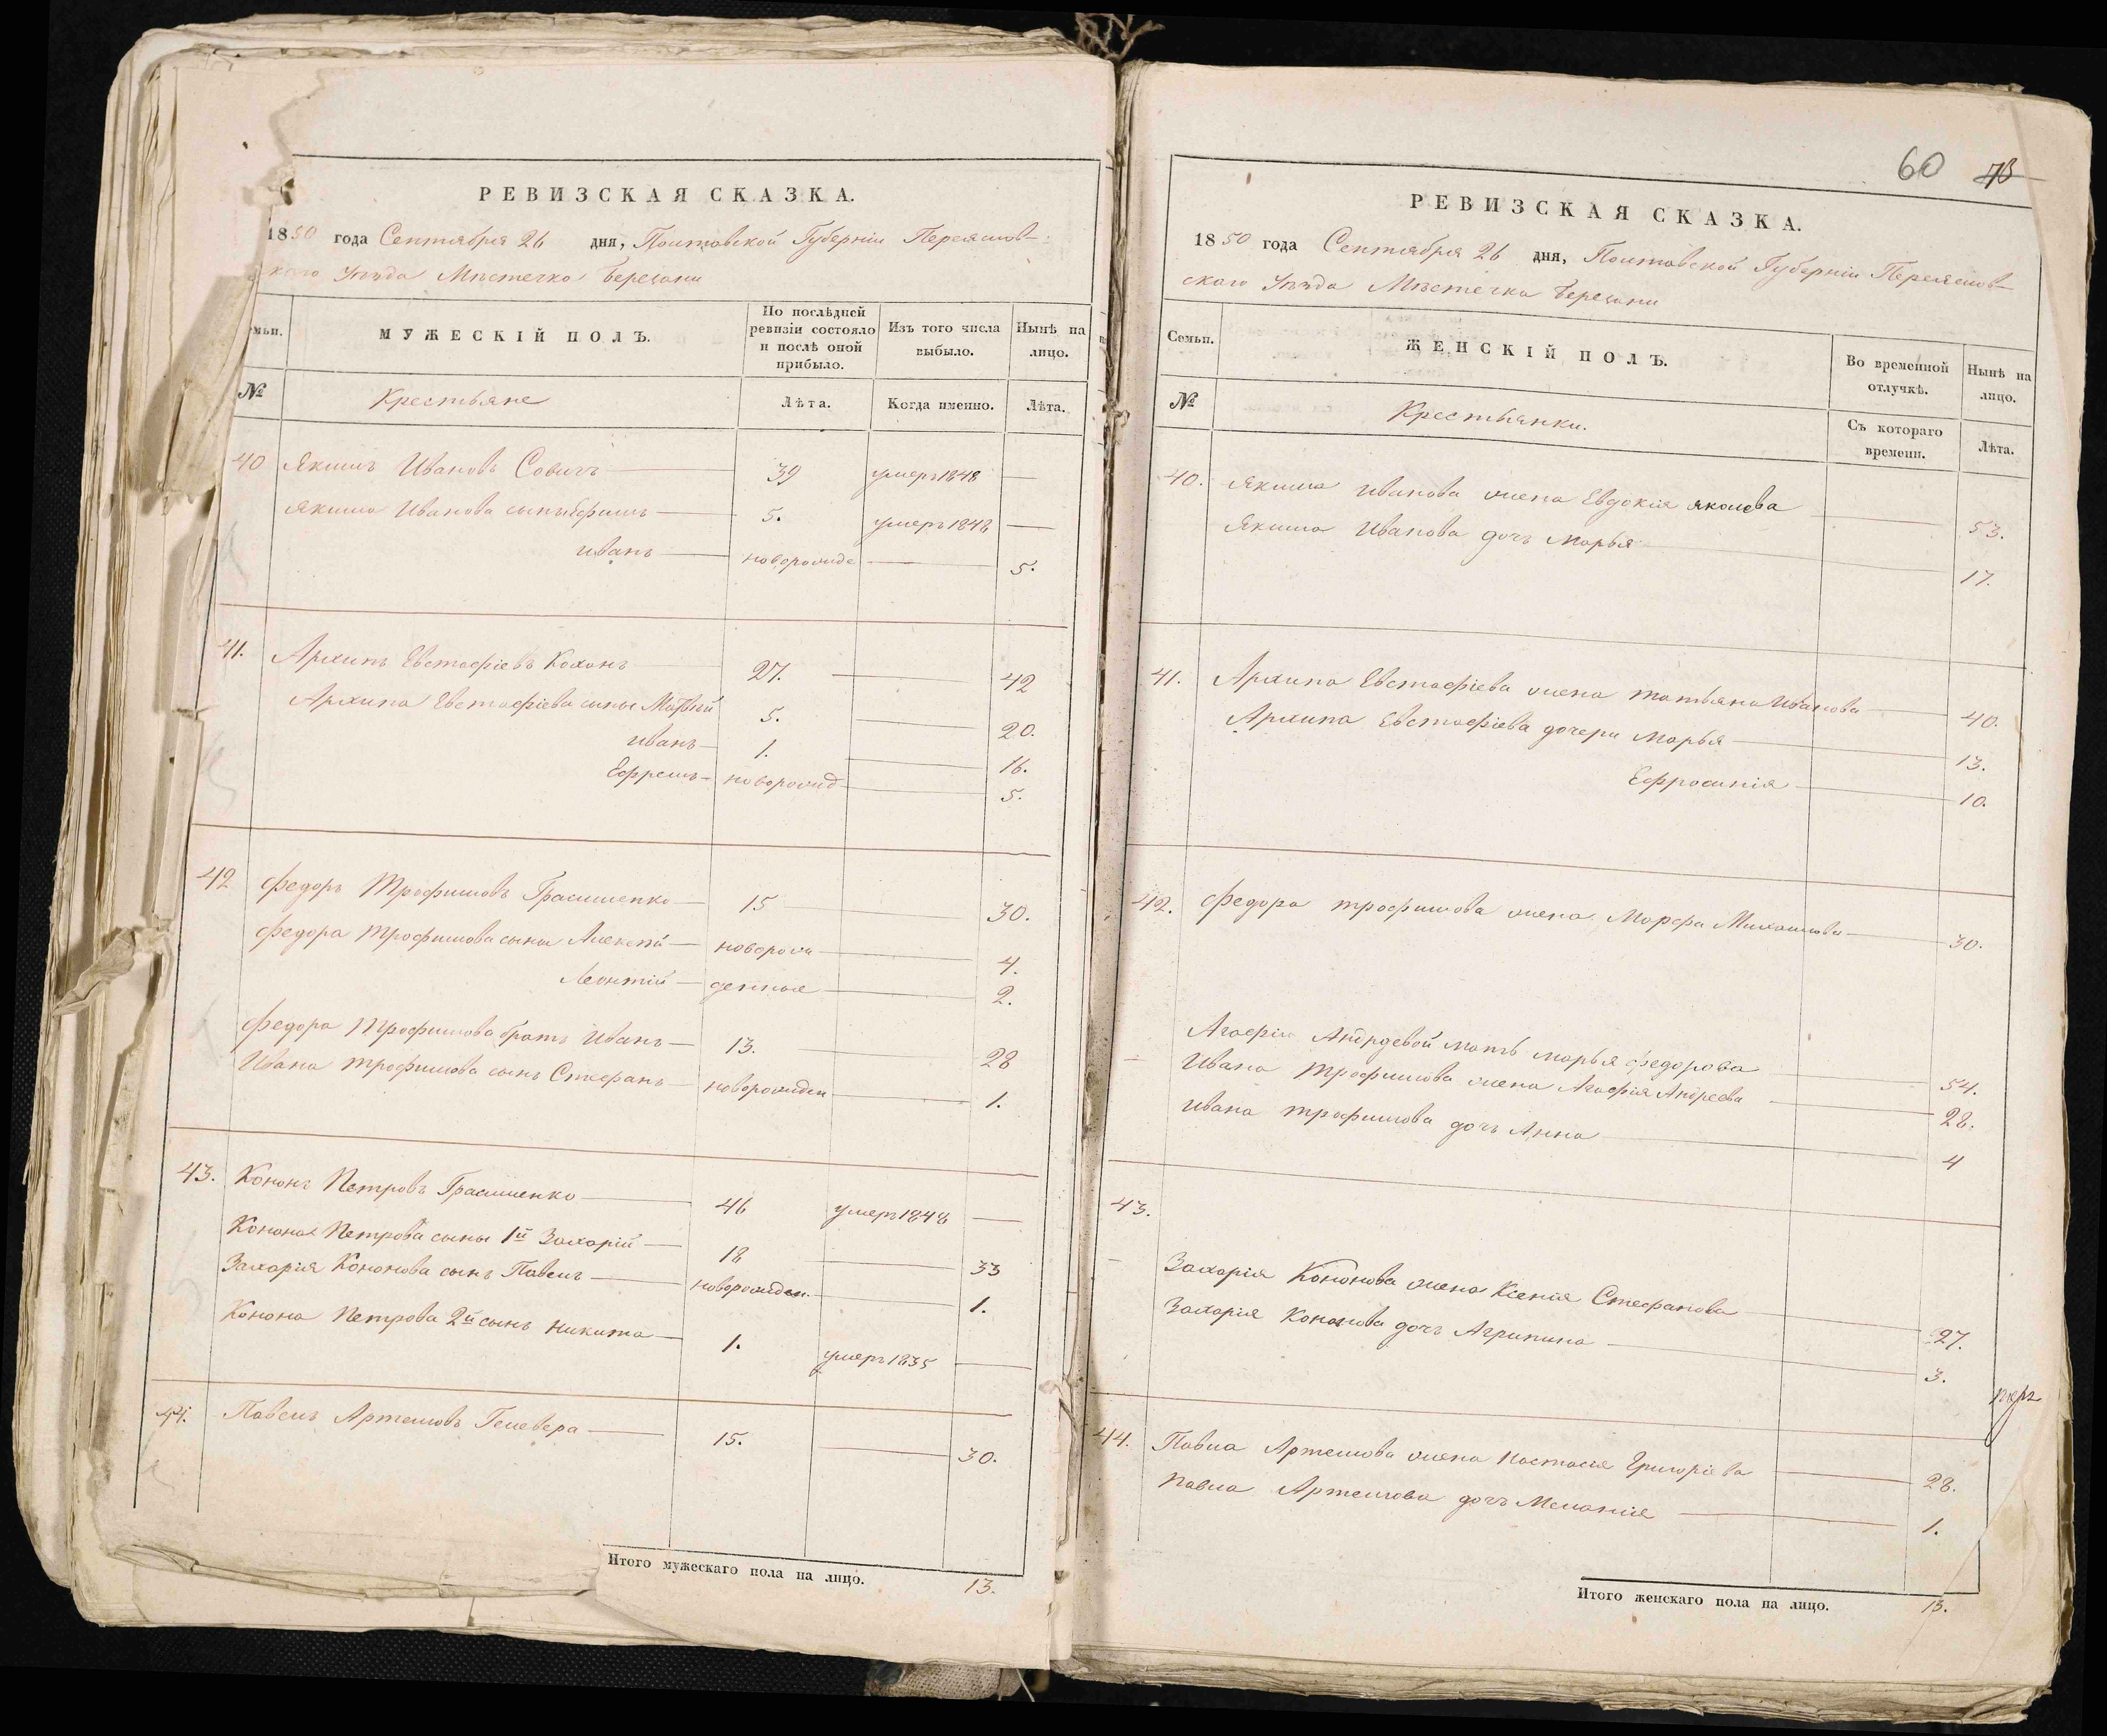 РЕВИЗСКАЯ СКАЗКА.
1850 года Сентября 26 дня, Полтавской Губерніи Переяслов-
скаго Уѣзда Мѣстечка Березани
МУЖЕСКІЙ ПОЛЪ.
По послѣдней ревизіи состояло и послѣ оной прибыло.
Изъ того числа выбыло.
Нынѣ на лицо.
№ Крестьяне Лѣта. Когда именно. Лѣта.
40 Якимъ Ивановъ 39 умеръ 1848
Якима Иванова сыны Ефимъ 5. умеръ 1848
Иванъ новорожде 5.
41. Архипъ Евстафіевъ Коханъ 27. 42
Архипа Евстафіева сыны Матвѣй 5. 20.
Иванъ 1. 16.
Ефремъ новорожд 5.
42 Федоръ Трофимовъ Грасименко 15 30.
Федора Трофимова сыны Алексѣй новорож 4.
Леонтій денные 2.
Федора Трофимова братъ Иванъ 13. 28
Ивана Трофимова сынъ Стефанъ новорожден 1.
43. Кононъ Петровъ Грасименко 46 умеръ 1848
Конона Петрова сыны 1й Захарій 18 33
Захарія Кононова сынъ Павелъ новорожден. 1.
Конона Петрова 2й сынъ Никита 1. умеръ 1835
44. Павелъ Артемовъ Гелевера 15. 30.
Итого мужескаго пола на лицо. 13.
60 73
РЕВИЗСКАЯ СКАЗКА.
1850 года Сентября 26 дня, Полтавской Губерніи Переяслов-
скаго Уѣзда Мѣстечка Березани
Семьи. ЖЕНСКІЙ ПОЛЪ.
Во временной отлучкѣ.
Нынѣ на лицо.
№ Крестьянки. Съ котораго времени. Лѣта.
40. Якима Иванова жена Евдокія Яколева 53.
Якима Иванова дочь Марья 17.
41. Архипа Евстафіева жена Татьяна Иванова 40.
Архипа Евстафіева дочери Марья 13.
Ефросинія 10.
42. Федора Трофимова жена Марфа Михаилова 30.
Агафіи Андреевой мать Марья Федорова 54.
Ивана Трофимова жена Агафія Андреева 28.
Ивана Трофимова дочь Анна 4
43.
Захарія Кононова жена Ксенія Стефанова 27.
Захарія Кононова дочь Агрипина 3.
44. Павла Артемова жена Настасія Григоріева 28.
Павла Артемова дочь Меланія 1.
Итого женскаго пола на лицо. 13.